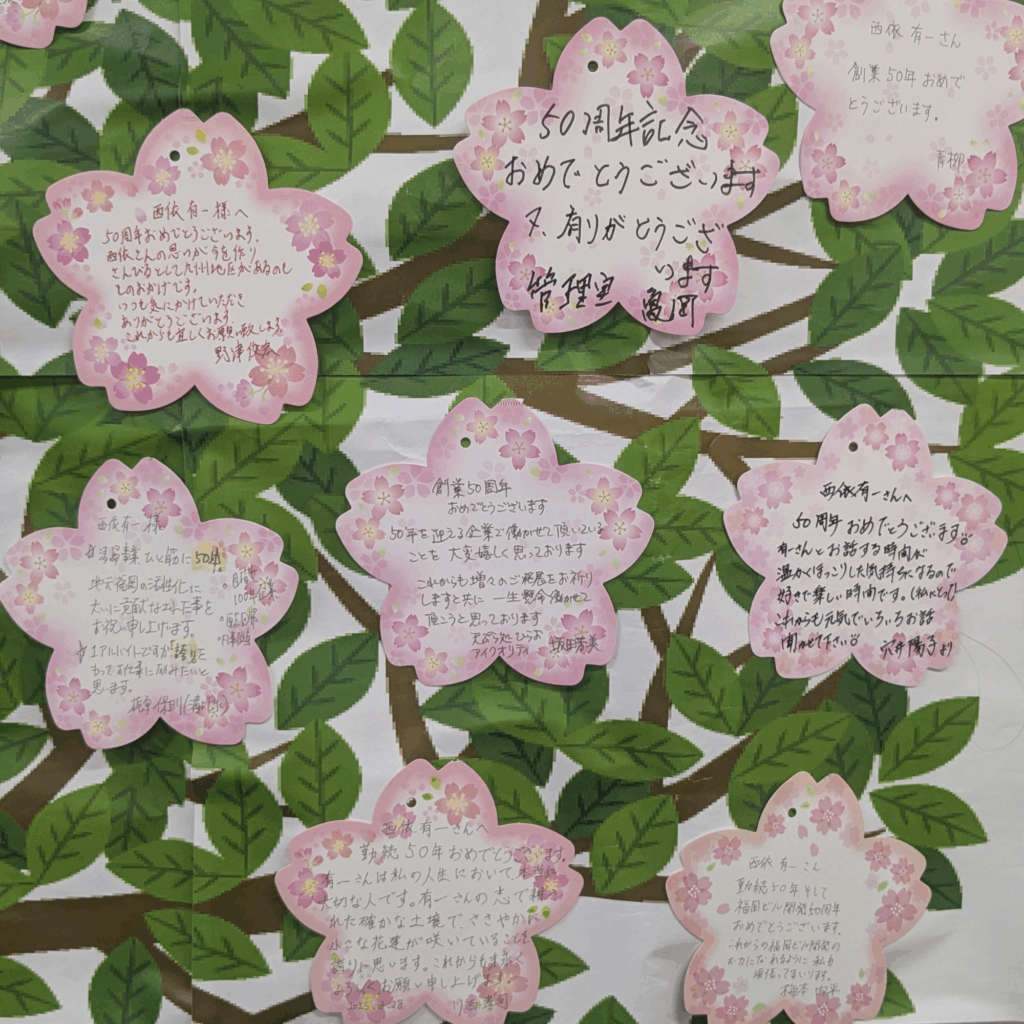 西依 有一さん
創業50年 おめで
とうございます。
青柳
50周年記念
おめでとうございます
又、有りがとうござ
います
管理室 亀岡
西依 有一様へ
50周年おめでとうございます。
西依さんの思いが今を作り
さんびるとして九州地区があるのも
そのおかげです。
いつも気にかけていただき
ありがとうございます。
これからも宜しくお願い致します。
野津
創業50周年
おめでとうございます
50年を迎える企業で働かせて頂いている
ことを大変嬉しく思っております
これからも増々のご発展をお祈り
しますと共に 一生懸命働かせて
頂こうと思っております
天ぷら処ひらお
アイクオリティ 坂田芳美
西依有一さんへ
50周年おめでとうございます
有一さんとお話する時間が
温かくほっこりした気持ちになるので
好きで楽しい時間です。(私にとって)
これからも元気でいろいろお話
聞かせて下さい
沢井陽子より
西依有一様
ビル
筋に50年
地元福岡の活性化に
大いに貢献
お祝い申し上げます。
1アルバイトですが誇りを
もってお仕事に励みたいと
思います。
西依 有一さんへ
勤続50年おめでとうございます。
有一さんは私の人生において、本当に
大切な人です。有一さんの志で耕さ
れた確かな土壌で、ささやかに
小さな花達が咲いていることを
誇りに思います。これからも末永く
よろしくお願い申し上げます。
西依 有一さん
勤続50年そして
福岡ビル開発50周年
おめでとうございます。
これからの福岡ビル開発の
オカになれるように 私も
頑張ってまいります。
梅本